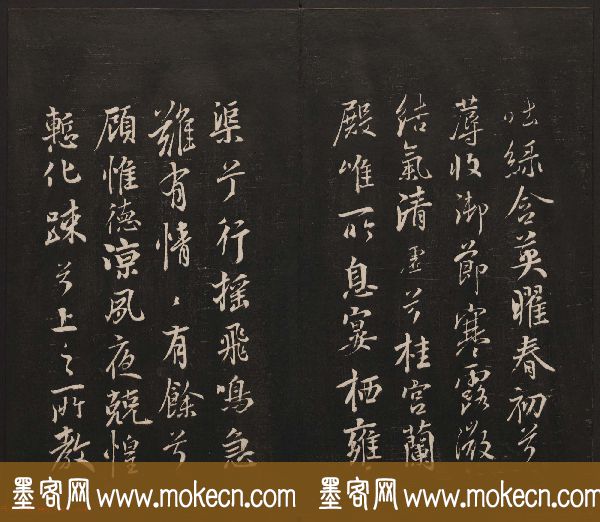 吐綠含英曜春初兮
蓐收御節寒露微
結氣清虛兮桂宮蘭
殿唯所息宴栖雍
渠兮行搖飛鳴急
難有情〻有餘兮
顧惟德凉夙夜兢惶
慙化踈兮上之所教
墨客网 www.mokecn.com 墨客网 www.mokecn.com